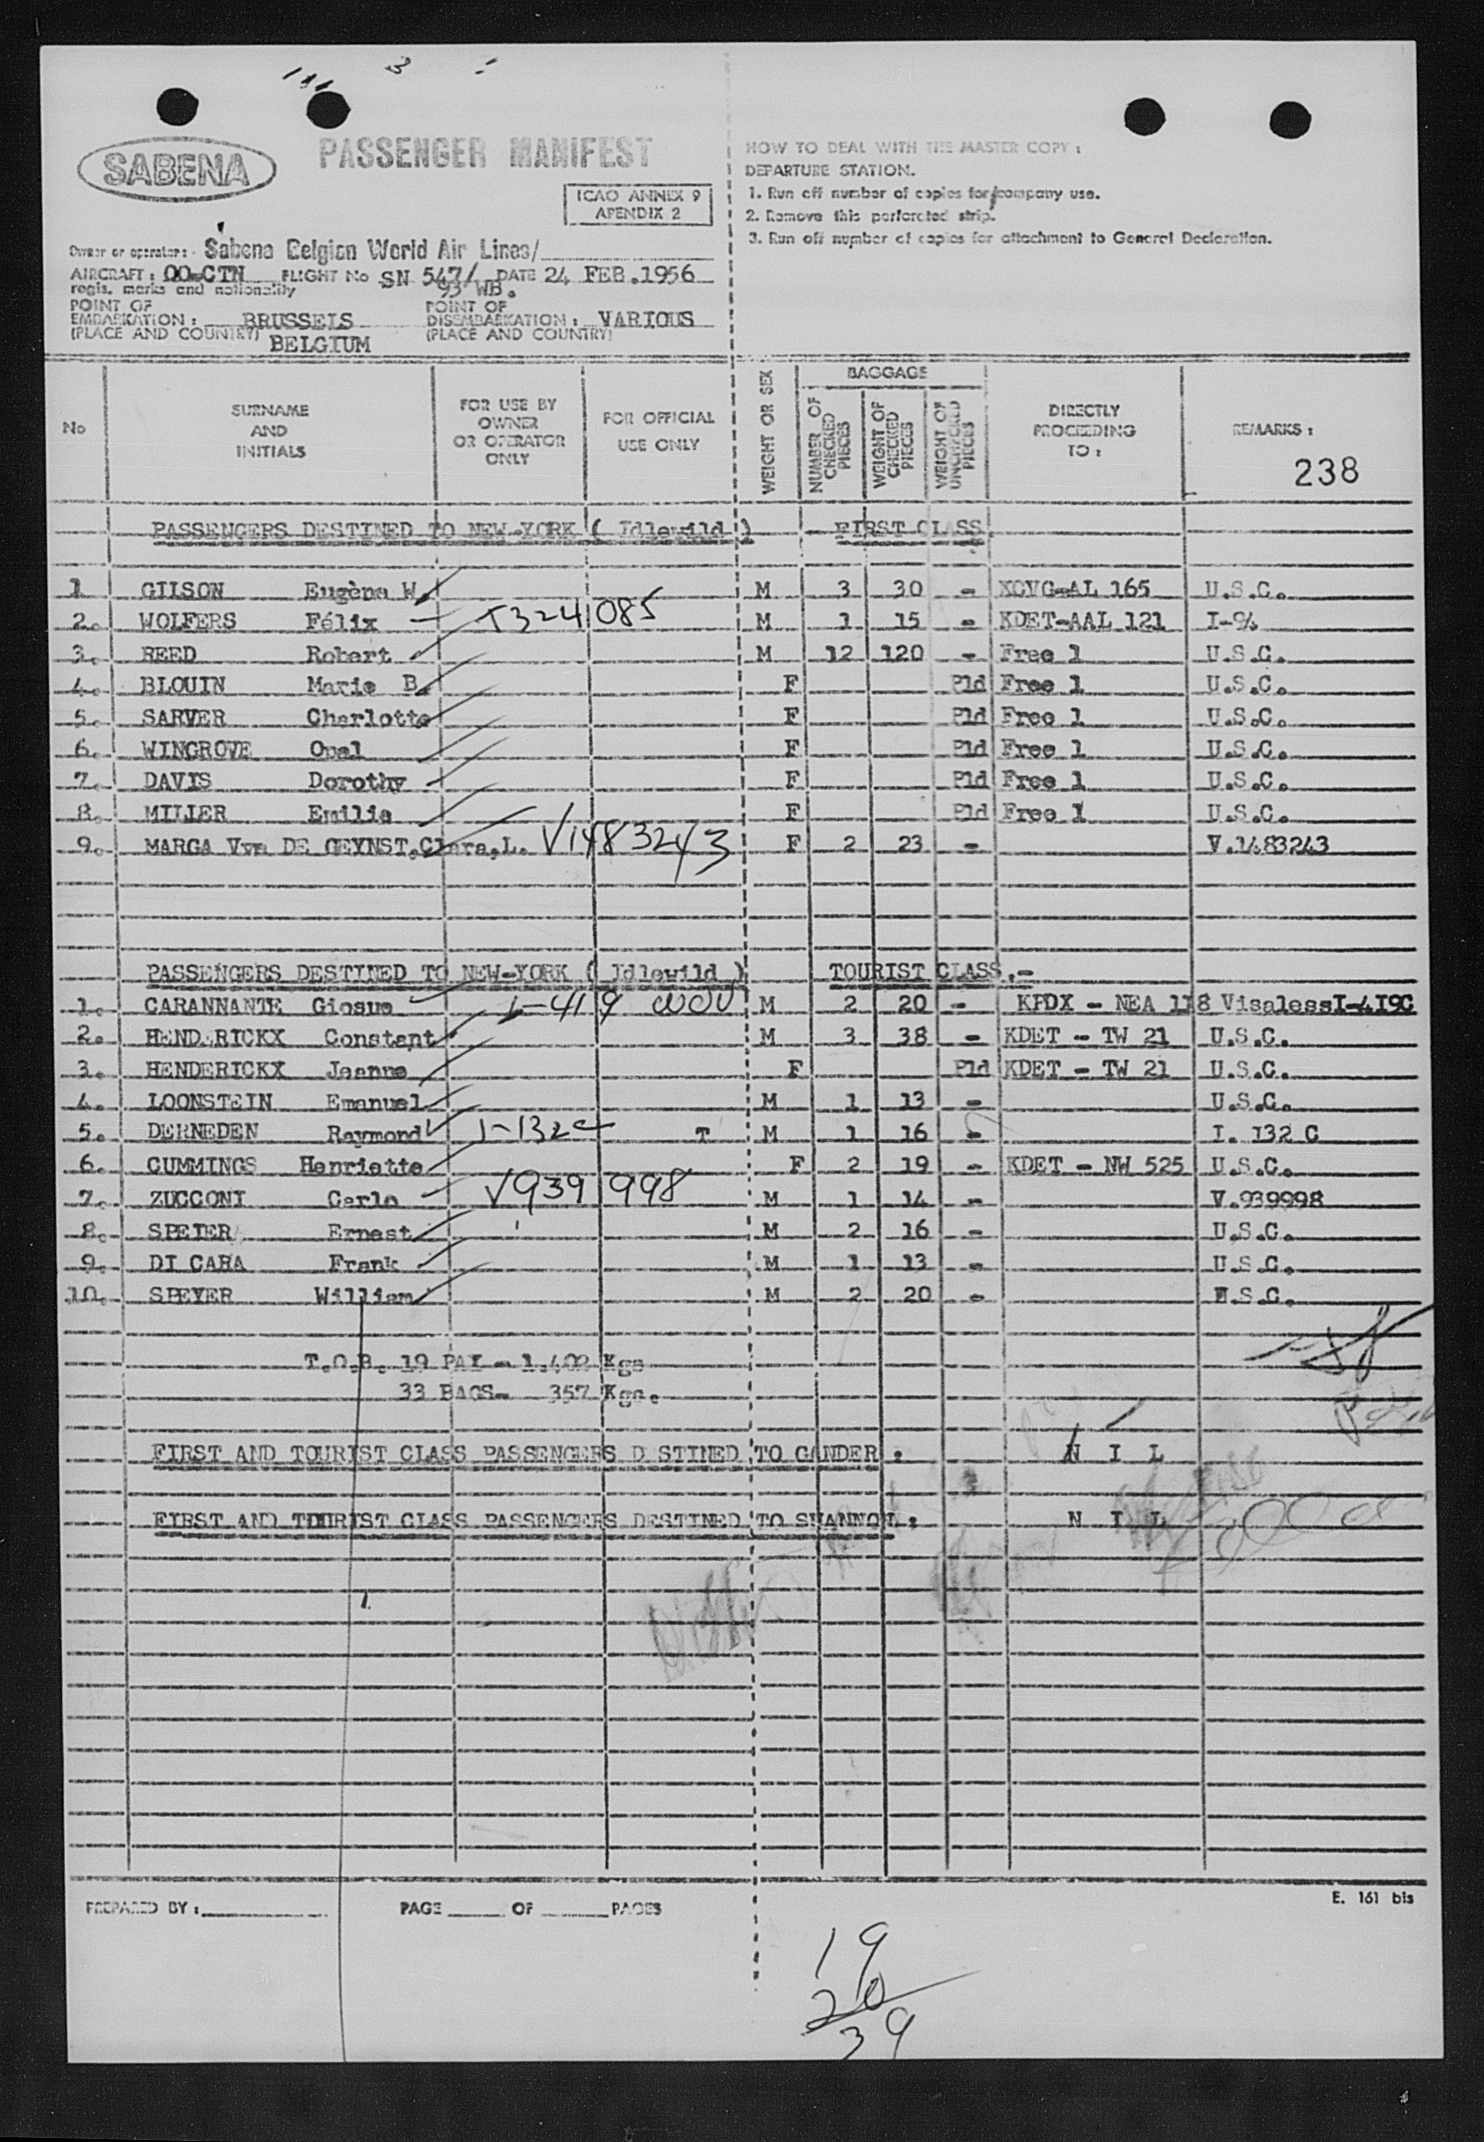 SABENA PASSENGER MANIFEST
ICAO ANNEX 9
APENDIX 2
HOW TO DEAL WITH THE MASTER COPY :
DEPARTURE STATION.
1. Run off number of copies for company use.
2. Remove this perforated strip.
3. Run off number of copies for attachment to General Declaration.
Owner or operator: Sabena Belgian World Air Lines/
AIRCRAFT : OO-CTN FLIGHT No SN 547/ DATE 24 FEB.1956
regis. marks and nationality 93 WB.
POINT OF POINT OF
EMBARKATION : BRUSSELS DISEMBARKATION : VARIOUS
(PLACE AND COUNTRY) BELGIUM (PLACE AND COUNTRY)
No
SURNAME
AND
INITIALS
FOR USE BY
OWNER
OR OPERATOR
ONLY
FOR OFFICIAL
USE ONLY
WEIGHT OR SEX
BAGGAGE
NUMBER OF
CHECKED
PIECES
WEIGHT OF
CHECKED
PIECES
WEIGHT OF
UNCHECKED
PIECES
DIRECTLY
PROCEEDING
TO :
REMARKS :
238
PASSENGERS DESTINED TO NEW-YORK ( Idlewild ) FIRST CLASS
1 GILSON Eugène W. M 3 30 - KCVG-AL 165 U.S.C.
2. WOLFERS Félix T324085 M 1 15 - KDET-AAL 121 I-94
3. REED Robert M 12 120 - Free 1 U.S.C.
4. BLOUIN Marie B. F Pld Free 1 U.S.C.
5. SARVER Charlotte F Pld Free 1 U.S.C.
6. WINGROVE Opal F Pld Free 1 U.S.C.
7. DAVIS Dorothy F Pld Free 1 U.S.C.
8. MILLER Emilie F Pld Free 1 U.S.C.
9. MARGA Vve DE GEYNST,Clara,L. V1483243 F 2 23 - V.1483243
PASSENGERS DESTINED TO NEW-YORK ( Idlewild ) TOURIST CLASS.-
1. CARANNANTE Giosue I-419 M 2 20 - KPDX - NEA 118 VisalessI-419C
2. HENDERICKX Constant M 3 38 - KDET - TW 21 U.S.C.
3. HENDERICKX Jeanne F Pld KDET - TW 21 U.S.C.
4. LOONSTEIN Emanuel M 1 13 - U.S.C.
5. DERNEDEN Raymond I-132c T M 1 16 - I. 132 C
6. CUMMINGS Henriette F 2 19 - KDET - NW 525 U.S.C.
7. ZUCCONI Carlo V939998 M 1 14 - V.939998
8. SPEIER Ernest M 2 16 - U.S.C.
9. DI CARA Frank M 1 13 - U.S.C.
10. SPEYER William M 2 20 - U.S.C.
T.O.B. 19 PAX - 1.402 Kgs
33 BAGS- 357 Kgs.
FIRST AND TOURIST CLASS PASSENGERS D STINED TO GANDER : N I L
FIRST AND TOURIST CLASS PASSENGERS DESTINED TO SHANNON : N I L
E. 161 bis
PREPARED BY : PAGE OF PAGES
19
20
39